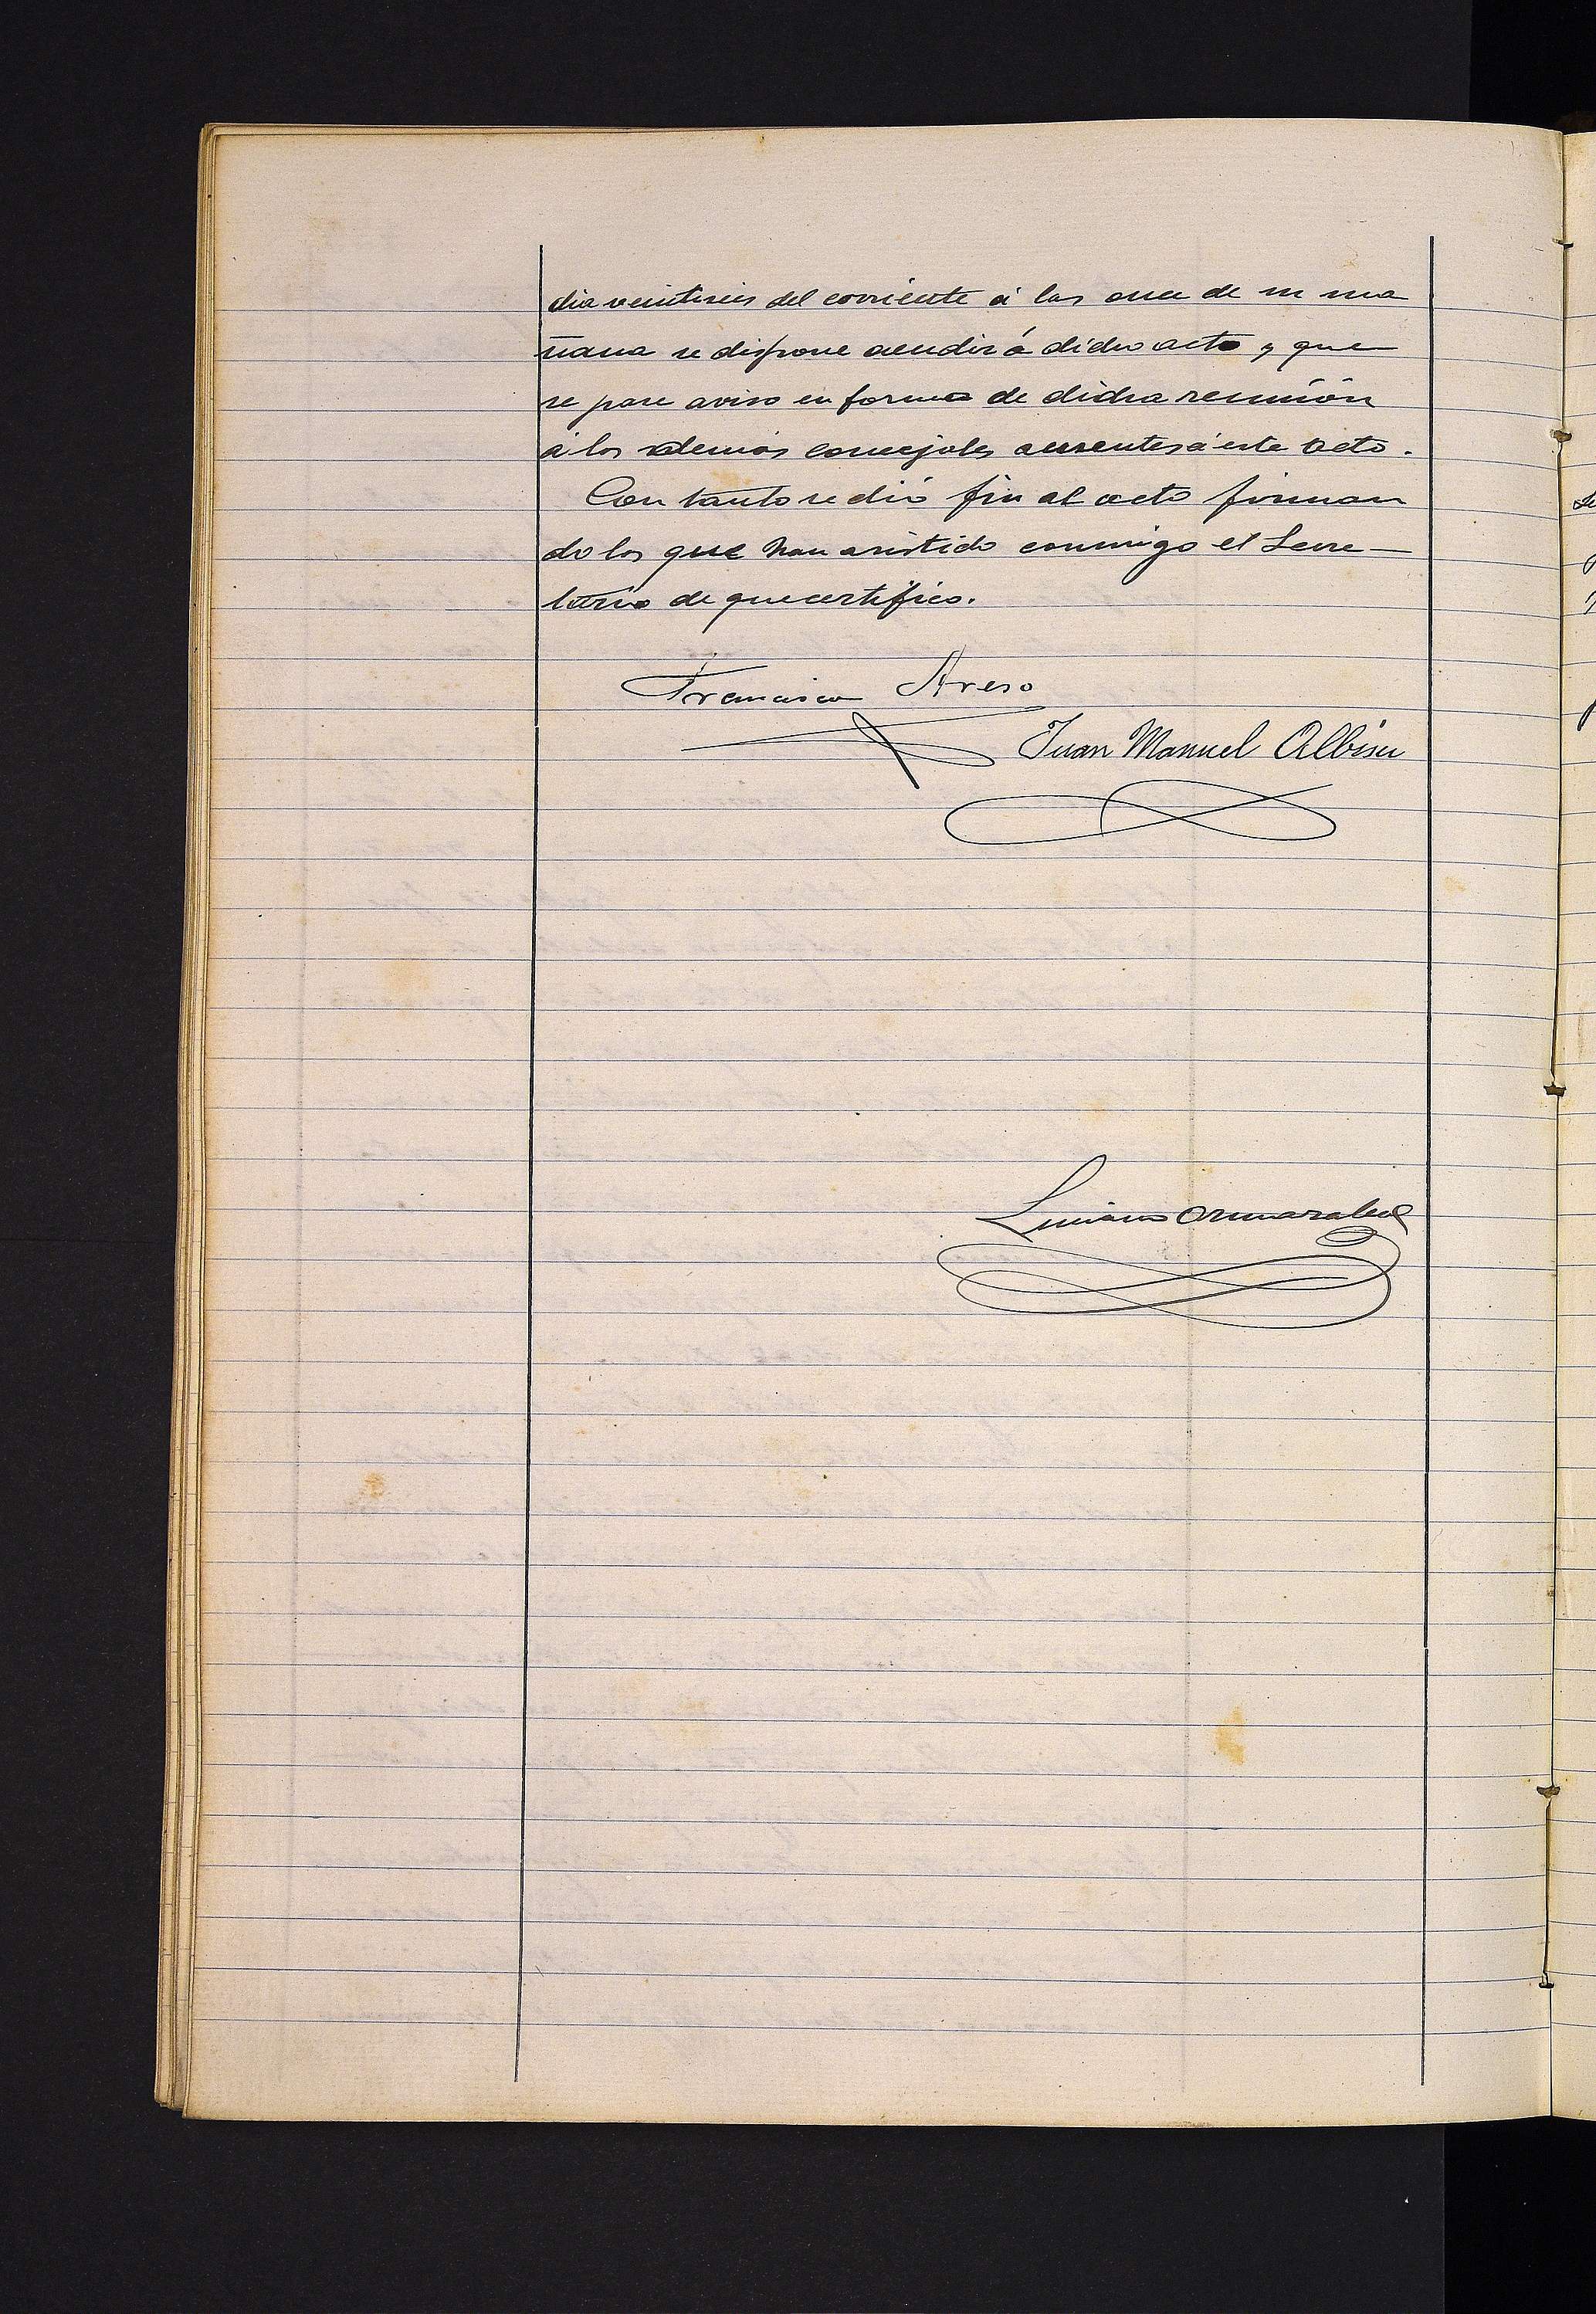 dia veintiseis del corriente á las once de su ma
ñana se dispone acudir á dicho acto y que
se pase aviso en forma de dicha reunión
á los demás concejales ausentes á este acto.
Con tanto se dió fin al acto firman
do los que han asistido conmigo el Secre-
tario de que certifico.
Francisco Areso
Juan Manuel Albisu
Luciano